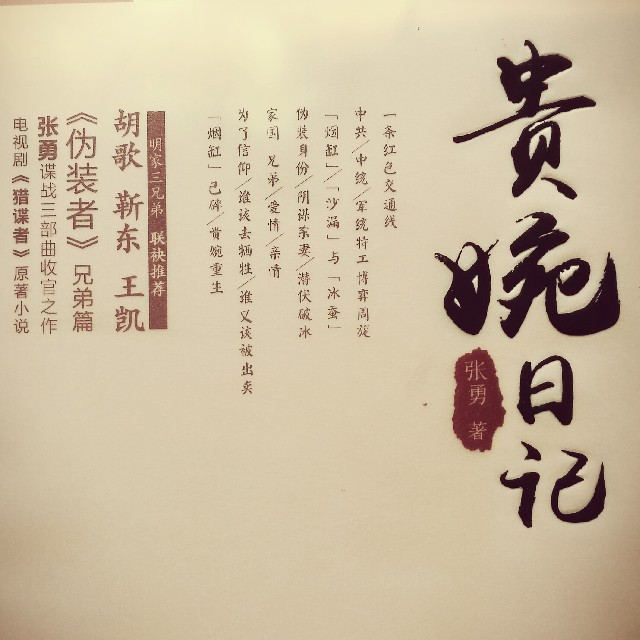 贵婉日记
张勇 著
一条红色交通线
中共/中统/军统特工博弈周旋
「烟缸」/「沙漏」与「冰蚕」
伪装身份/阴谋杀妻/潜伏破冰
家国/兄弟/爱情/亲情
为了信仰/谁该去牺牲/谁又该被出卖
「烟缸」已碎/贵婉重生
明家三兄弟 联袂推荐
胡歌 靳东 王凯
《伪装者》兄弟篇
张勇谍战三部曲收官之作
电视剧《猎谍者》原著小说